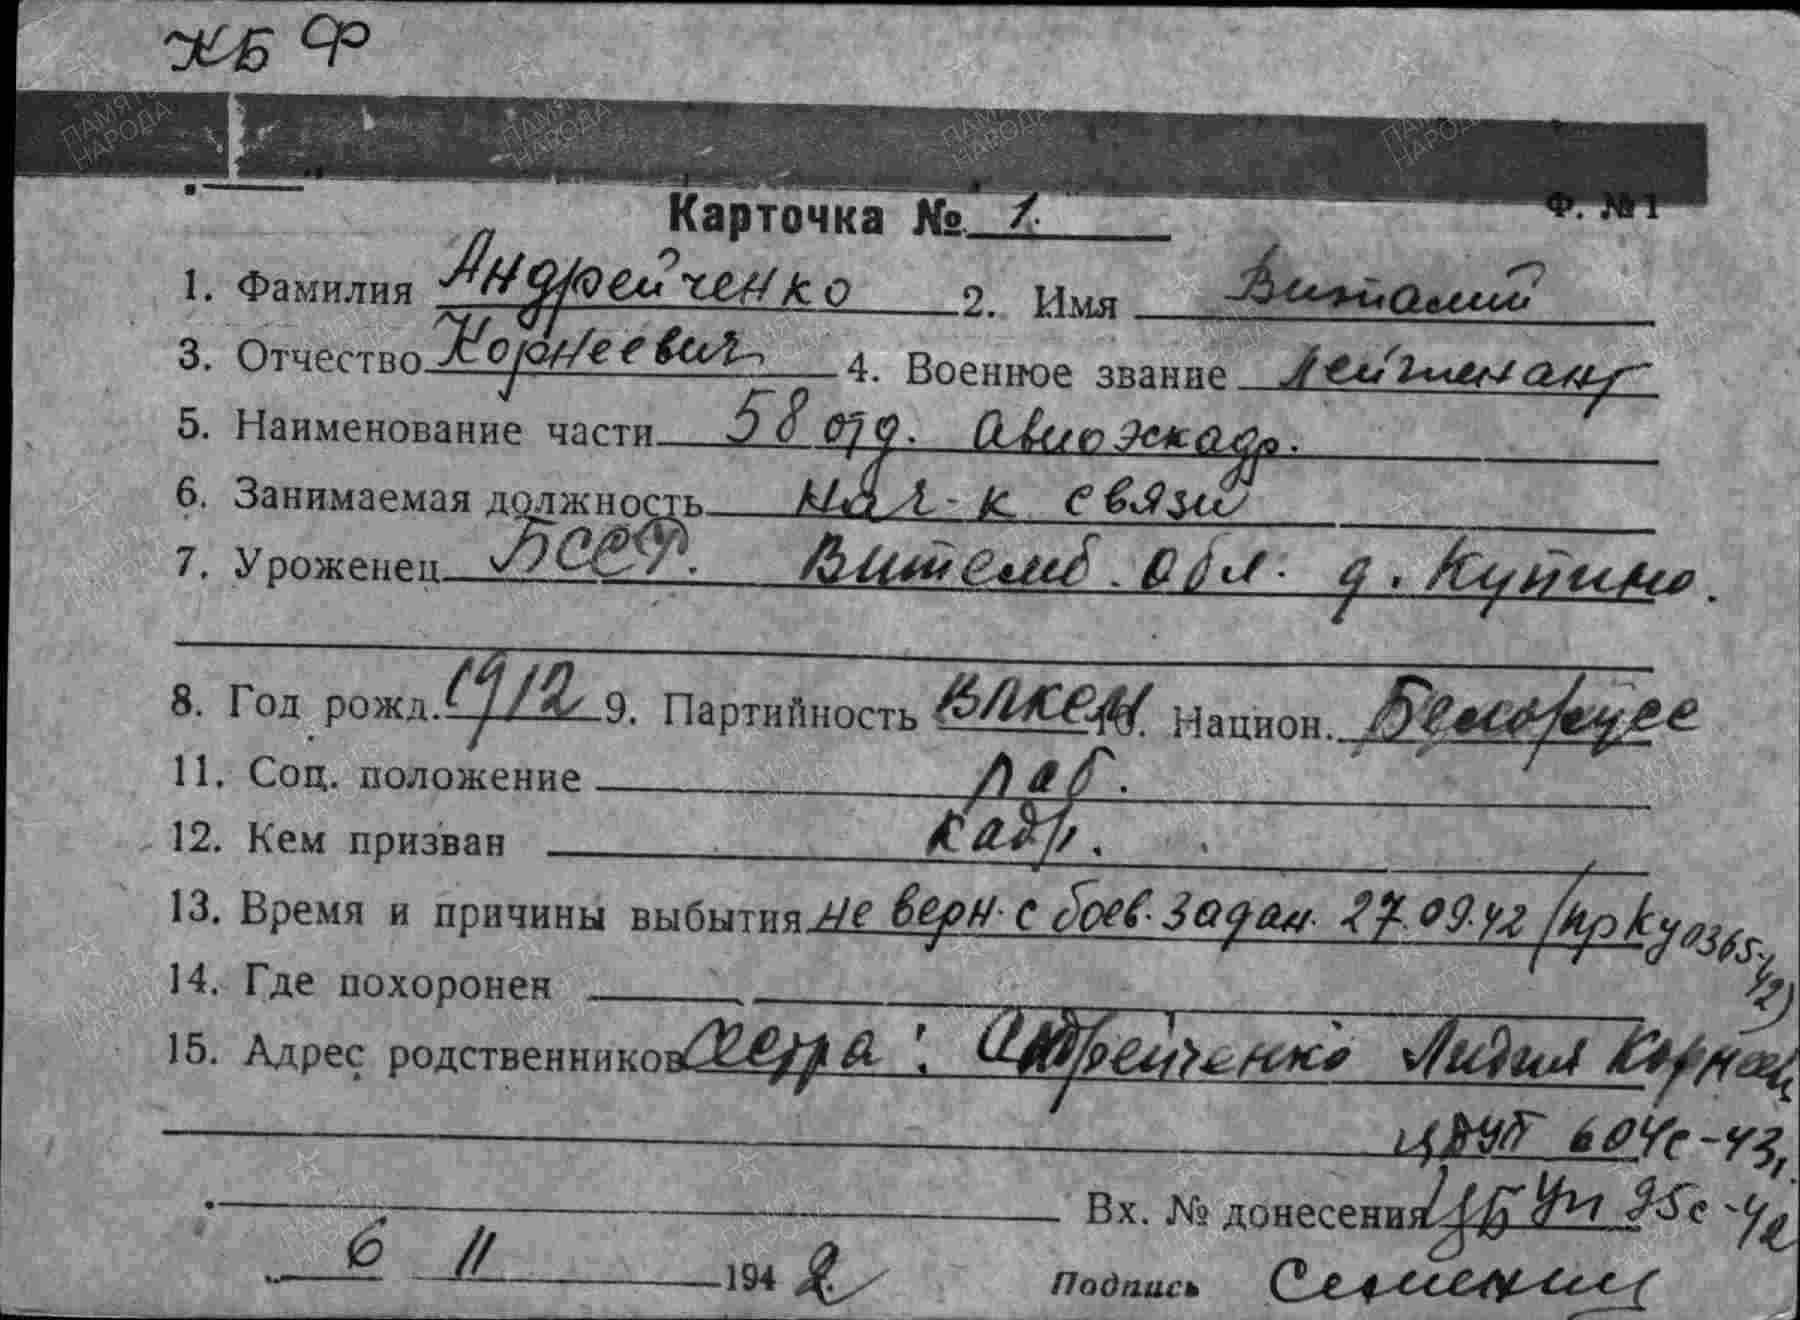 КБФ
Ф. № 1
Карточка № 1.
1. Фамилия Андрейченко 2. Имя Виталий
3. Отчество Корнеевич 4. Военное звание лейтенант
5. Наименование части 58 отд. авиоэскадр.
6. Занимаемая должность нач-к связи
7. Уроженец БССР. Витебс. обл. д. Купино.
8. Год рожд. 1912 9. Партийность ВЛКСМ 10. Национ. Белорусс
11. Соц. положение раб.
12. Кем призван кадр.
13. Время и причины выбытия не верн. с боев. задан. 27.09.42 /пр КУ 0365-42)
14. Где похоронен
15. Адрес родственников сестра: Андрейченко Лидия Корнеев
604с-43,
Вх. № донесения 95с-42
6 11 1942
Подпись
ПАМЯТЬ НАРОДА